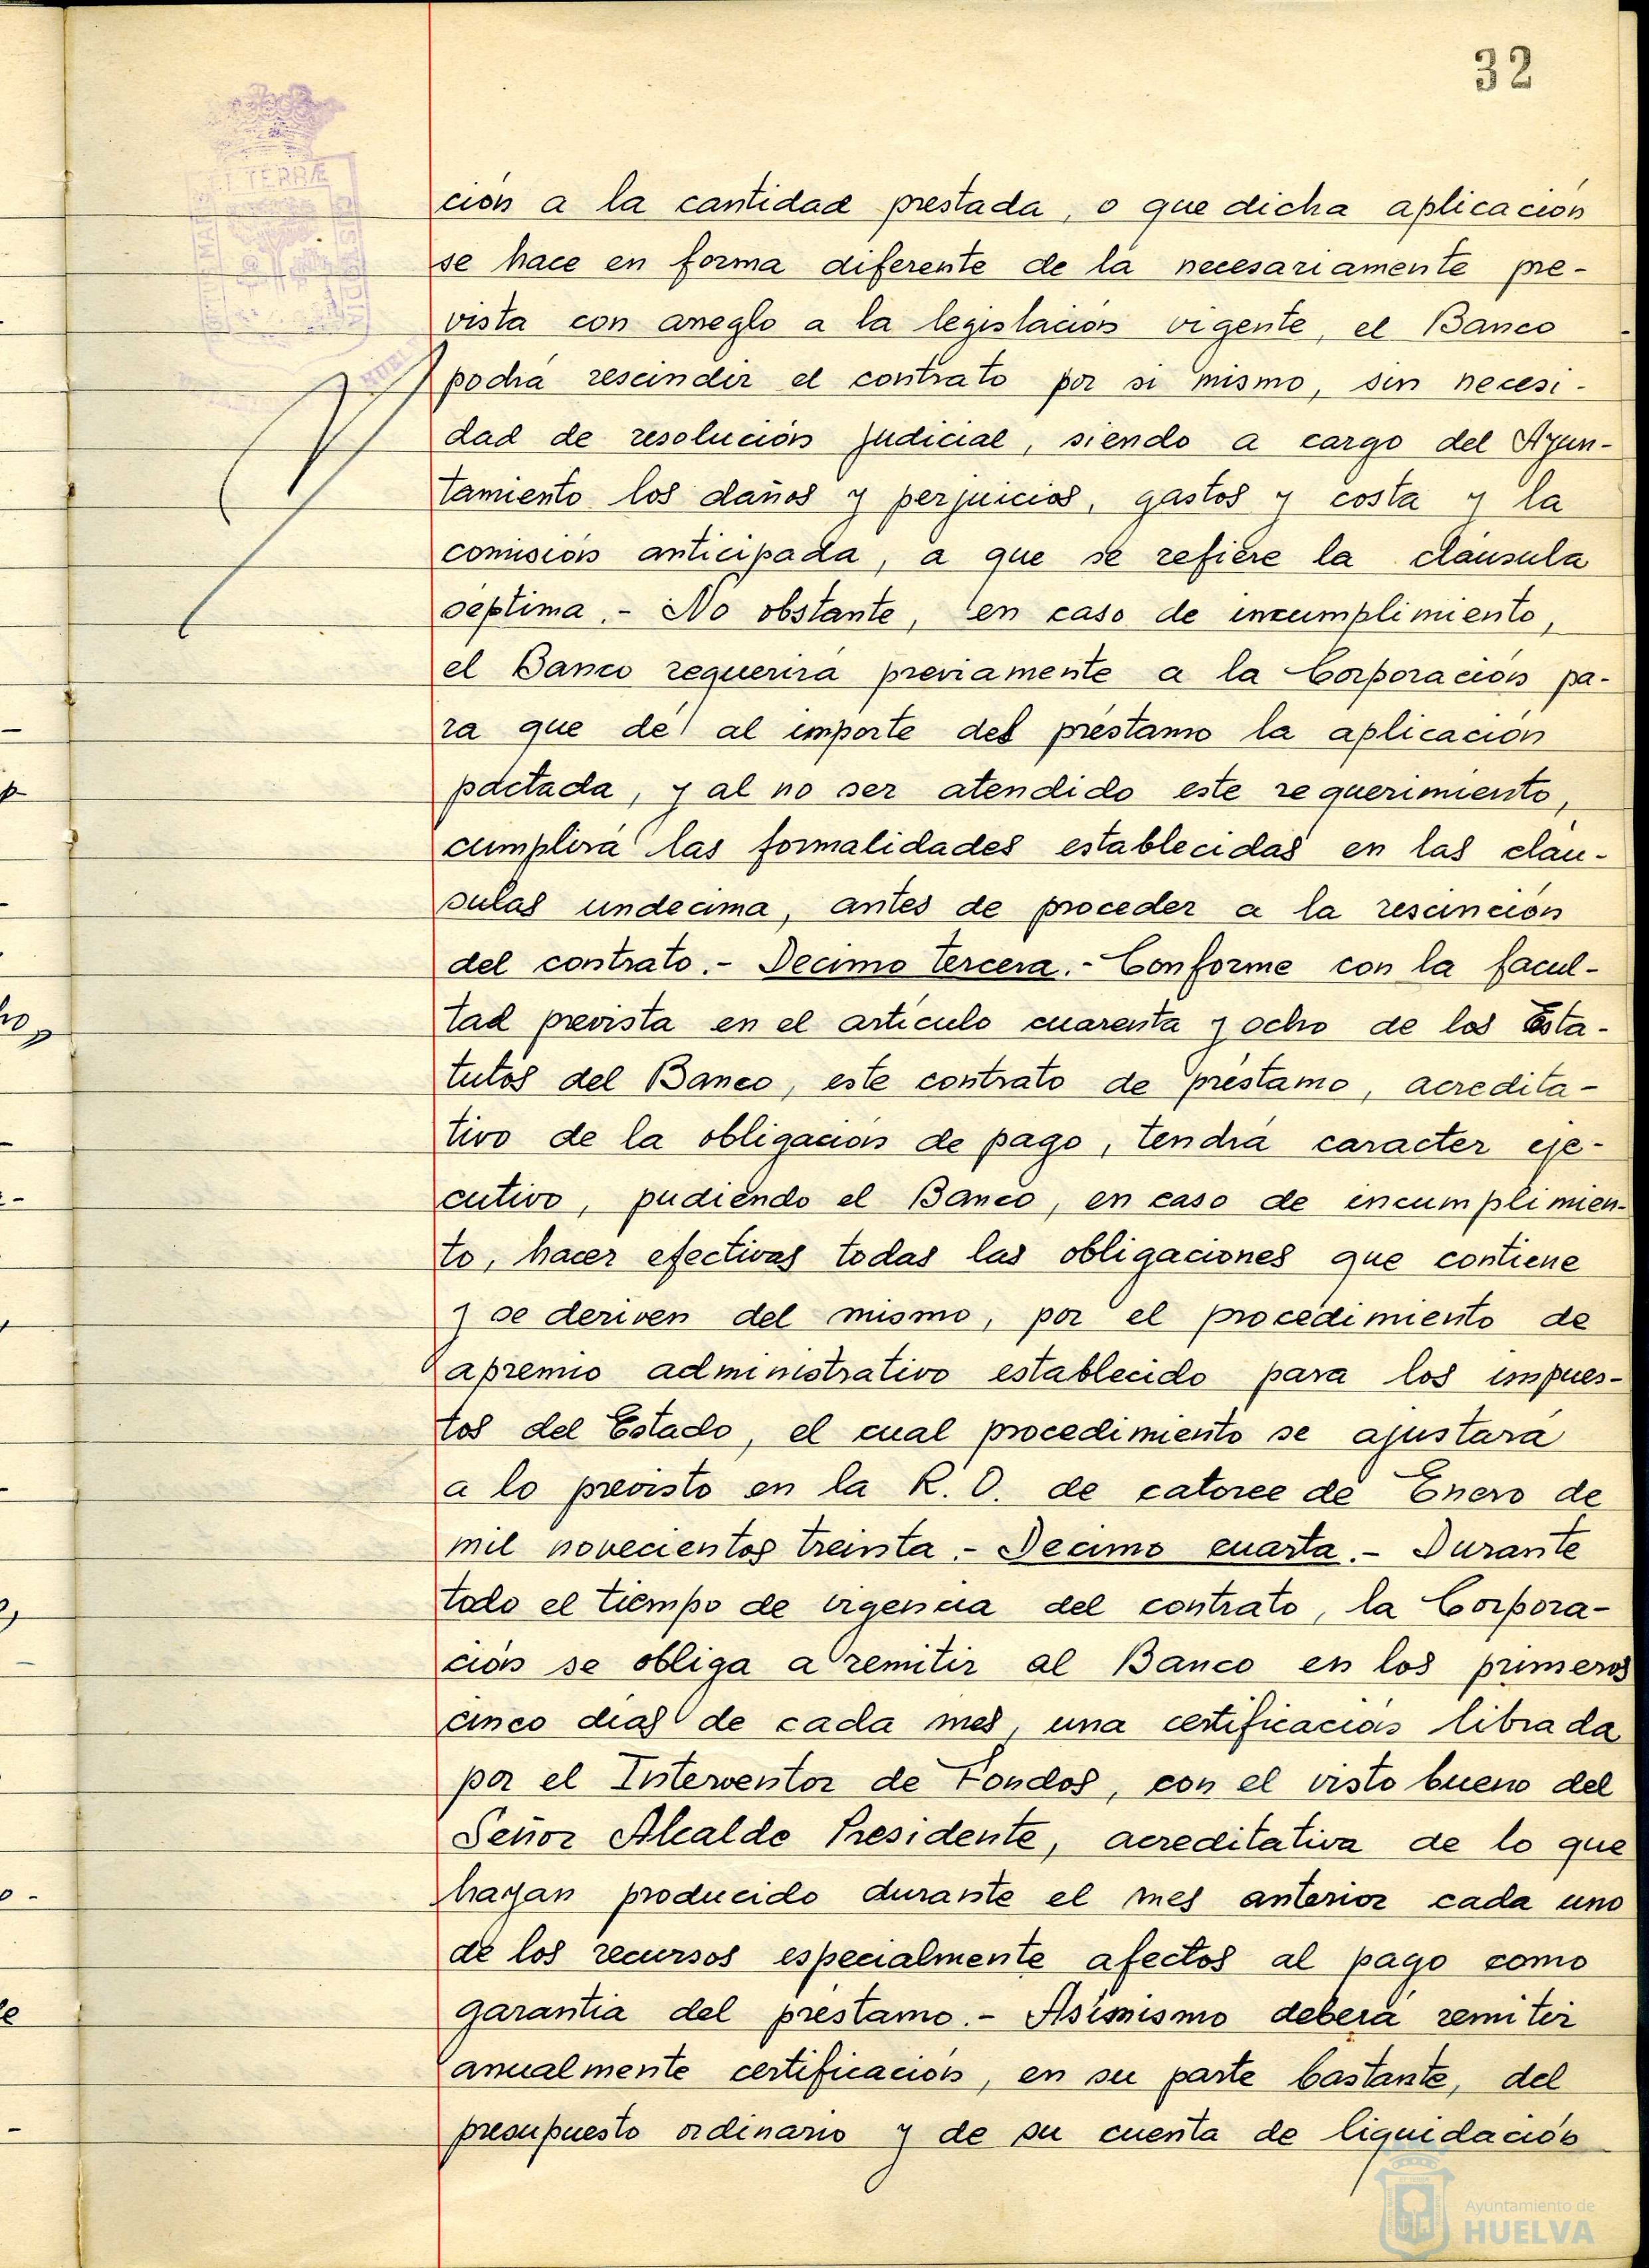 32
ET TERRÆ
CUSTODIA
PORTUS MARIS
ción a la cantidad prestada, o que dicha aplicación
se hace en forma diferente de la necesariamente pre-
vista con arreglo a la legislación vigente, el Banco
podrá rescindir el contrato por si mismo, sin necesi-
dad de resolución judicial, siendo a cargo del Ayun-
tamiento los daños y perjuicios, gastos y costa y la
comisión anticipada, a que se refiere la cláusula
séptima.- No obstante, en caso de incumplimiento,
el Banco requerirá previamente a la Corporación pa-
ra que dé al importe del préstamo la aplicación
pactada, y al no ser atendido este requerimiento,
cumplirá las formalidades establecidas en las cláu-
sulas undecima, antes de proceder a la rescinción
del contrato.- Decimo tercera.- Conforme con la facul-
tad prevista en el artículo cuarenta y ocho de los Esta-
tutos del Banco, este contrato de préstamo, acredita-
tivo de la obligación de pago, tendrá caracter eje-
cutivo, pudiendo el Banco, en caso de incumplimien-
to, hacer efectivas todas las obligaciones que contiene
y se deriven del mismo, por el procedimiento de
apremio administrativo establecido para los impues-
tos del Estado, el cual procedimiento se ajustará
a lo previsto en la R. O. de catorce de Enero de
mil novecientos treinta.- Decimo cuarta.- Durante
todo el tiempo de vigencia del contrato, la Corpora-
ción se obliga a remitir al Banco en los primeros
cinco días de cada mes, una certificación librada
por el Interventor de Fondos, con el visto bueno del
Señor Alcalde Presidente, acreditativa de lo que
hayan producido durante el mes anterior cada uno
de los recursos especialmente afectos al pago como
garantia del préstamo.- Asimismo deberá remitir
anualmente certificación, en su parte bastante, del
presupuesto ordinario y de su cuenta de liquidación
Ayuntamiento de
HUELVA